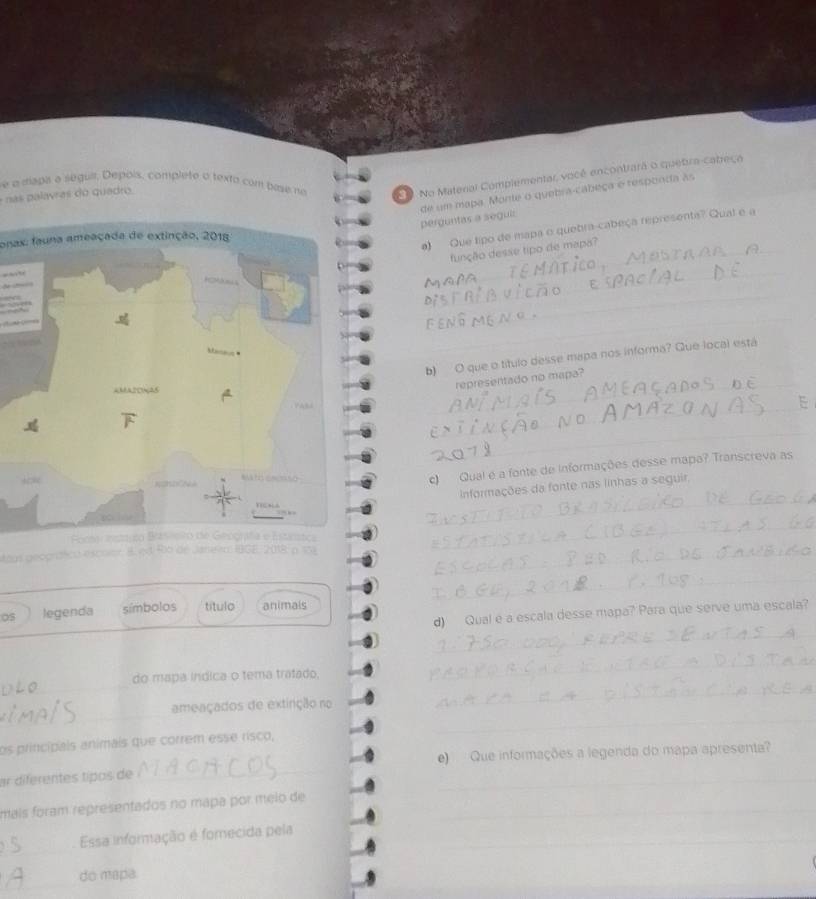 e o mapa a seguir. Depois, complete o texto com base no
nas palavras do quadro.
onas: fauna ameaçada de extinção, 2018
RORAIMA
Manaus
AMAZONAS
PARÁ
ACRE
RONDÔNIA
MATO GROSSO
ESCALA
Fonte: Instituto Brasileiro de Geografia e Estatística
Atlas geográfico escolar. 8. ed. Rio de Janeiro: IBGE, 2018. p. 108
os legenda símbolos título animais
ULO do mapa indica o tema tratado,
NIMAIS ameaçados de extinção no
os principais animais que correm esse risco,
ar diferentes tipos de MACACOS
mais foram representados no mapa por meio de
OS . Essa informação é fornecida pela
A do mapa.
3 No Material Complementar, você encontrará o quebra-cabeça
de um mapa. Monte o quebra-cabeça e responda às
perguntas a seguir.
a) Que tipo de mapa o quebra-cabeça representa? Qual é a
função desse tipo de mapa?
MAPA TEMÁTICO, MOSTRAR A
DISTRIBUICÃO ESPACIAL DE
FENÔMENO.
b) O que o título desse mapa nos informa? Que local está
representado no mapa?
ANIMAIS AMEAÇADOS DE
EXTINÇÃO NO AMAZONAS E
2018
c) Qual é a fonte de informações desse mapa? Transcreva as
informações da fonte nas linhas a seguir.
INSTITUTO BRASILEIRO DE GEOGA
ESTATISTICA (IBGE) ATLAS GG
ESCOLAS. 8 ED. RIO DE JANEIRO
IBGE, 2018. P. 108.
d) Qual é a escala desse mapa? Para que serve uma escala?
1:750 000, REPRESENTAS A
PROPORCAO ENTRE A DISTAN
MAPA E A DISTANCIA REA
e) Que informações a legenda do mapa apresenta?